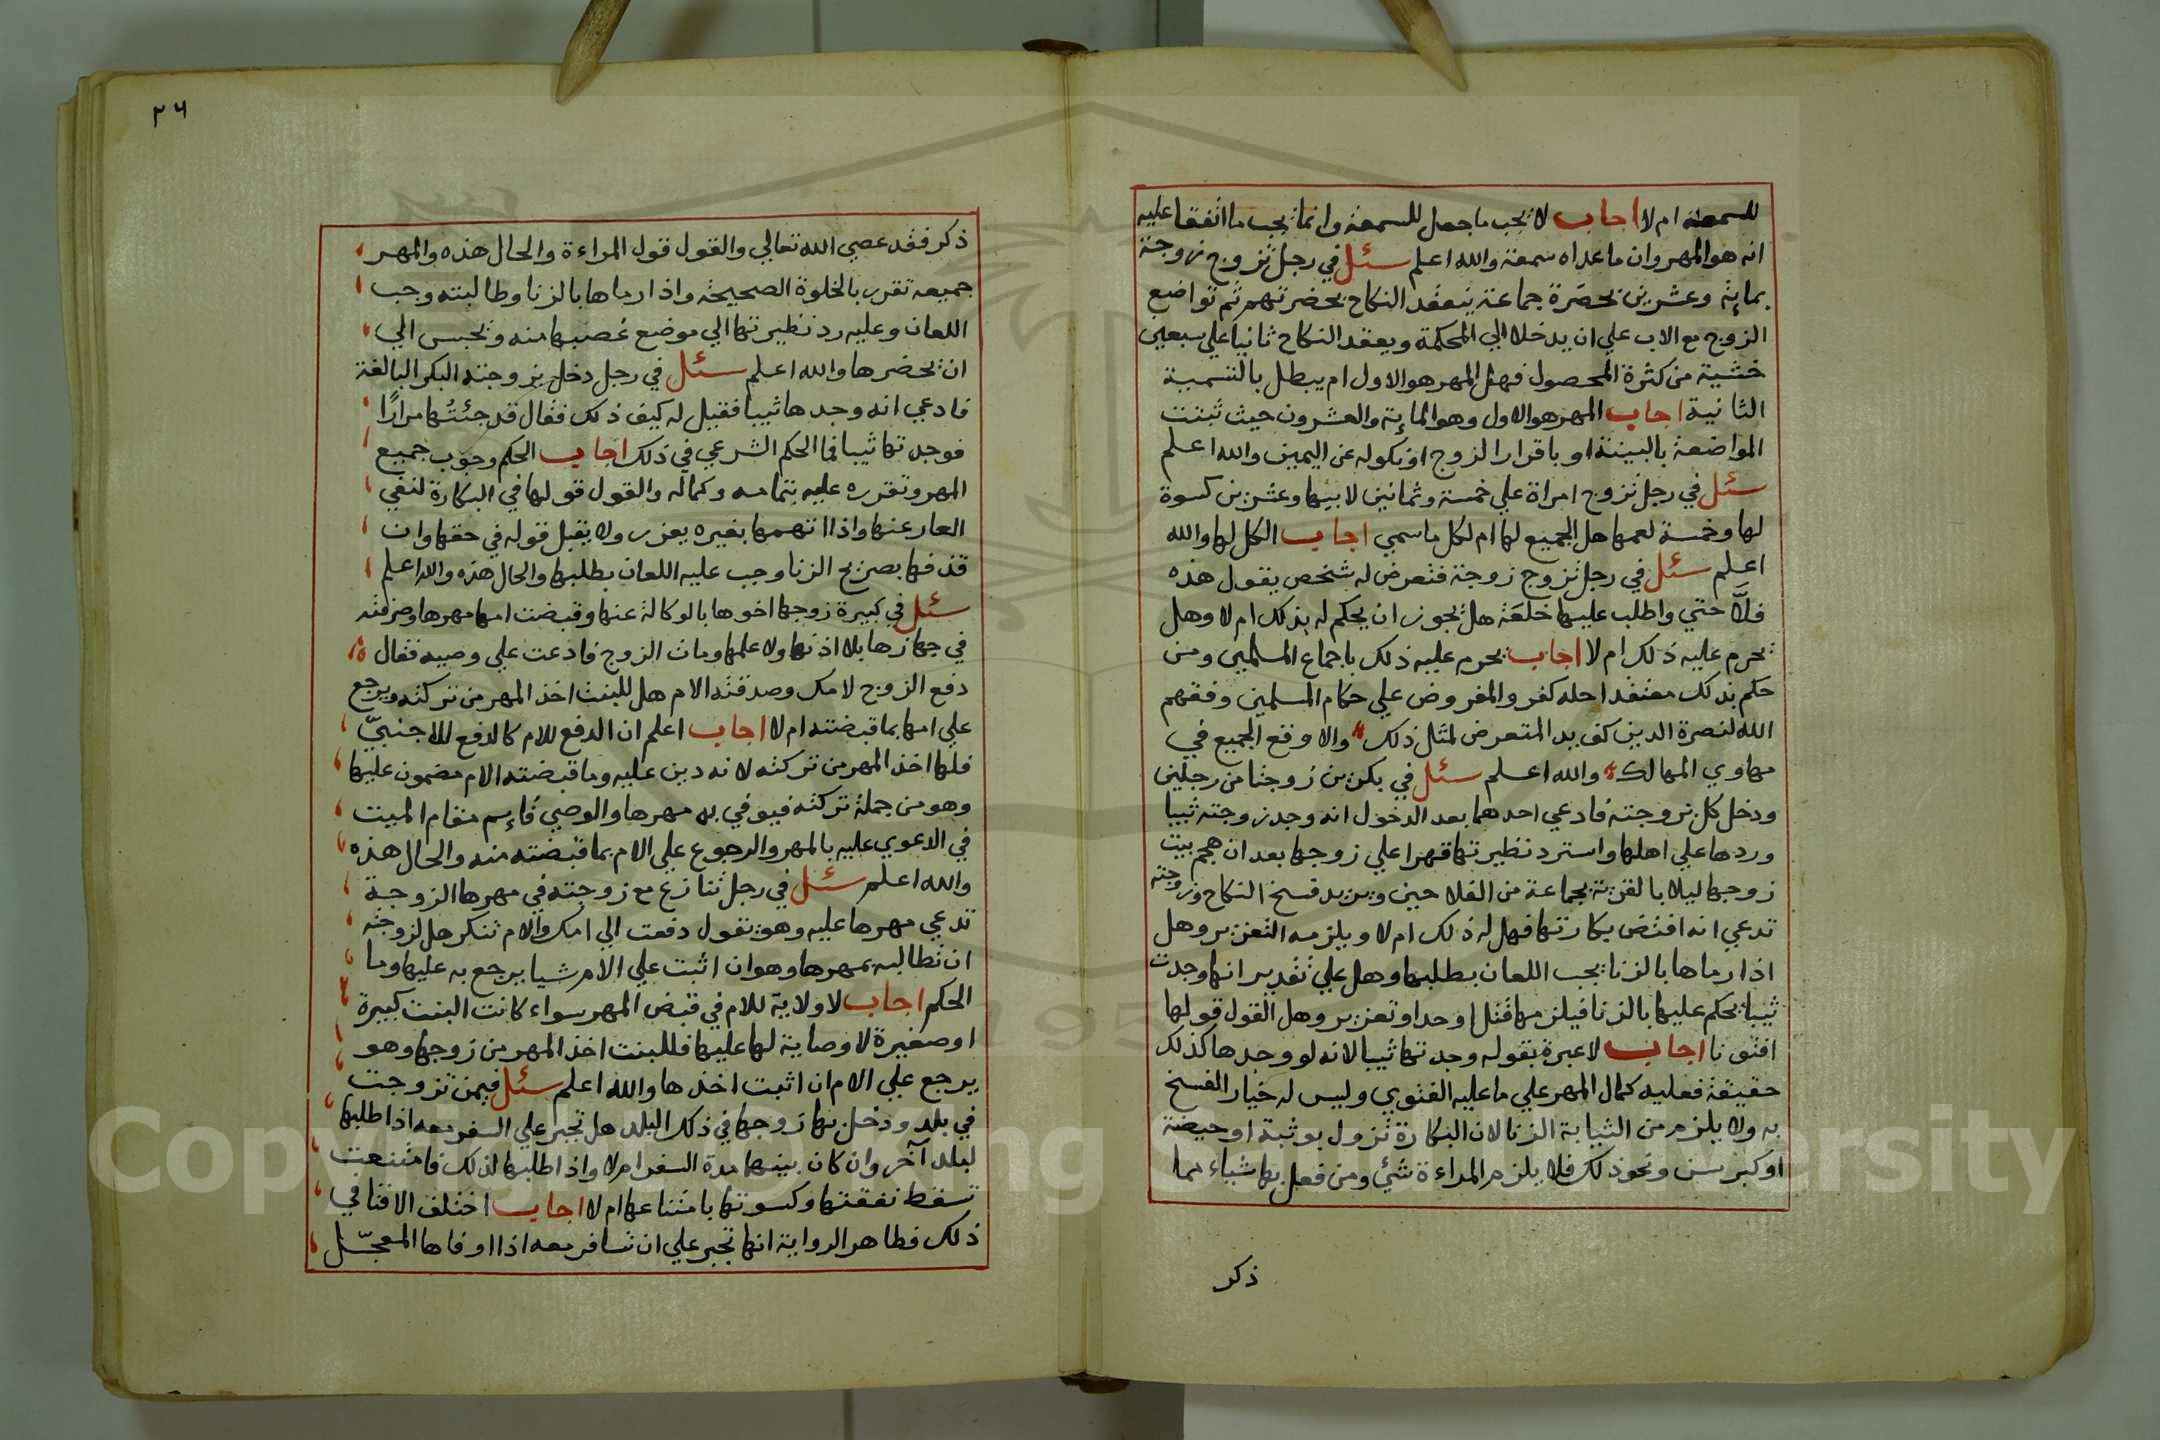 للسمعة ام لا اجاب لا يجب ما جعل للسمعة وانما يجب ما اتفقا عليه
انه هو المهر وان ما عداه سمعة والله اعلم سئل في رجل تزوج زوجة
بماية وعشرين بحضرة جماعة ينعقد النكاح بحضرتهم ثم تواضع
الزوج مع الاب علي ان يدخلا الي المحكمة ويعقد النكاح ثانيا علي سبعين
خشية من كثرة المحصول فهل المهر هو الاول ام يبطل بالتسمية
الثانية اجاب المهر هو الاول وهو الماية والعشرون حيث ثبتت
المواضعة بالبينة او باقرار الزوج او نكوله عن اليمين والله اعلم
سئل في رجل تزوج امراة علي خمسة وثمانين لابيها وعشرين كسوة
لها وخمسة لعمها هل الجميع لها ام لكل ما سمي اجاب الكل لها والله
اعلم سئل في رجل تزوج زوجة فتعرض له شخص يقول هذه
فلاحتي واطلب عليها خلعة هل يجوز ان يحكم له بذلك ام لا وهل
يحرم عليه ذلك ام لا اجاب يحرم عليه ذلك باجماع المسلمين ومن
حكم بذلك معتقدا حله كفر والمفروض علي حكام المسلمين وفقهم
الله لنصرة الدين كف يد المتعرض لمثل ذلك والا وقع الجميع في
مهاوي المهالك والله اعلم سئل في بكرين زوجتا من رجلين
ودخل كل بزوجته فادعي احدهما بعد الدخول انه وجد زوجته ثيبا
وردها علي اهلها واسترد نظيرتها قهرا علي زوجها بعد ان هجم بيت
زوجها ليلا بالقرية بجماعة من الفلاحين ويريد فسخ النكاح وزوجته
تدعي انه افتض بكارتها فهل له ذلك ام لا ويلزمه التعزير وهل
اذا رماها بالزنا يجب اللعان بطلبها وهل علي تقدير انها وجدت
ثيبا يحكم عليها بالزنا فيلزمها قتل او حد او تعزير وهل القول قولها
افتونا اجاب لا عبرة بقوله وجدتها ثيبا لانه لو وجدها كذلك
حقيقة فعليه كمال المهر علي ما عليه الفتوي وليس له خيار الفسخ
به ولا يلزم من الثيابة الزنا لان البكارة تزول بوثبة او حيضة
او كبر سن ونحو ذلك فلا يلزم المراءة شئي ومن فعل بها شياء مما
ذكر
٢٦
ذكر فقد عصي الله تعالي والقول قول المراءة والحال هذه والمهر
جميعه تقرر بالخلوة الصحيحة واذا رماها بالزنا وطالبته وجب
اللعان وعليه رد نظيرتها الي موضع غصبها منه ويحبس الي
ان يحضرها والله اعلم سئل في رجل دخل بزوجته البكر البالغة
فادعي انه وجدها ثيبا فقيل له كيف ذلك فقال قد جئتها مرارا
فوجدتها ثيبا فما الحكم الشرعي في ذلك اجاب الحكم وجوب جميع
المهر وتقرره عليه بتمامه وكماله والقول قولها في البكارة لنفي
العار عنها واذا اتهمها بغيره يعزر ولا يقبل قوله في حقها وان
قذفها بصريح الزنا وجب عليه اللعان بطلبها والحال هذه والله اعلم
سئل في كبيرة زوجها اخوها بالوكالة عنها وقبضت امها مهرها وصرفته
في جهازها بلا اذنها ولا علمها ومات الزوج فادعت علي وصيه فقال
دفع الزوج لامك وصدقته الام هل للبنت اخذ المهر من تركته ويرجع
علي امها بما قبضته ام لا اجاب اعلم ان الدفع للام كالدفع للاجنبي
فلها اخذ المهر من تركته لانه دين عليه وما قبضته الام مضمون عليها
وهو من جملة تركته فيوفي به مهرها والوصي قايم مقام الميت
في الدعوي عليه بالمهر والرجوع علي الام بما قبضته منه والحال هذه
والله اعلم سئل في رجل تنازع مع زوجته في مهرها الزوجة
تدعي مهرها عليه وهو يقول دفعت الي امك والام تنكر هل لزوجته
ان تطالبه بمهرها وهو ان اثبت علي الام شيا يرجع به عليها وما
الحكم اجاب لا ولاية للام في قبض المهر سواء كانت البنت كبيرة
او صغيرة لا وصاية لها عليها فللبنت اخذ المهر من زوجها وهو
يرجع علي الام ان اثبت اخذها والله اعلم سئل فيمن تزوجت
في بلد ودخل بها زوجها في ذلك البلد هل تجبر علي السفر معه اذا طلبها
لبلد آخر وان كان بينهما مدة السفر ام لا واذا طلبها لذلك فامتنعت
تسقط نفقتها وكسوتها بامتناعها ام لا اجاب اختلف الافتا في
ذلك فظاهر الرواية انها تجبر علي ان تسافر معه اذا اوفاها المعجل
Copyright © King Saud University